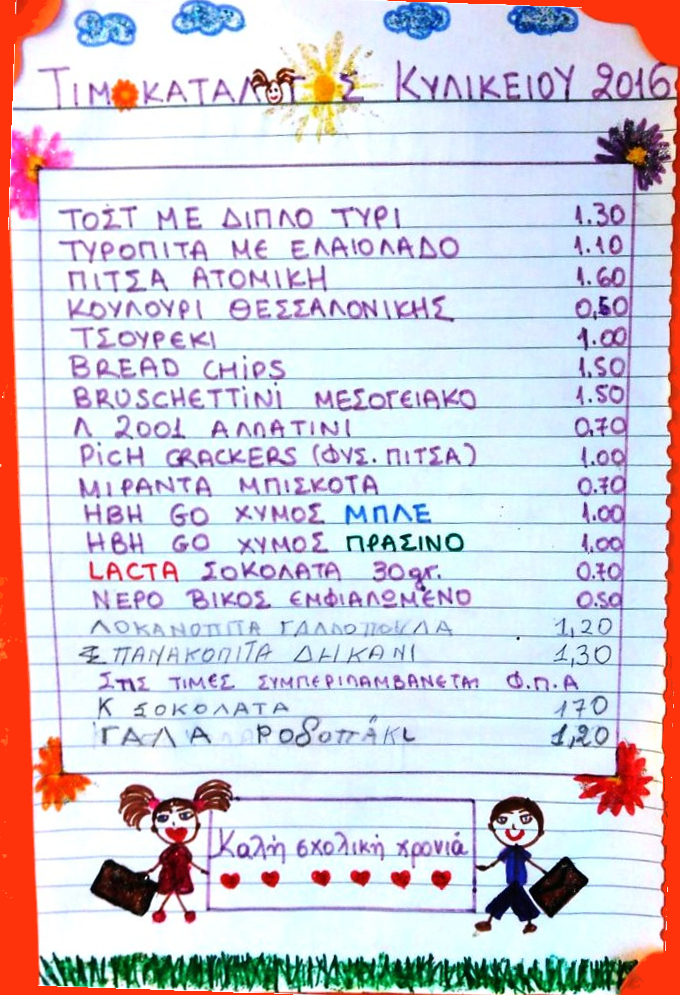 ΤΙΜΟΚΑΤΑΛΟΓΟΣ ΚΥΛΙΚΕΙΟΥ 2016
ΤΟΣΤ ΜΕ ΔΙΠΛΟ ΤΥΡΙ 1.30
ΤΥΡΟΠΙΤΑ ΜΕ ΕΛΑΙΟΛΑΔΟ 1.10
ΠΙΤΣΑ ΑΤΟΜΙΚΗ 1.60
ΚΟΥΛΟΥΡΙ ΘΕΣΣΑΛΟΝΙΚΗΣ 0,50
ΤΣΟΥΡΕΚΙ 1.00
BREAD CHiPS 1,50
BRUSCHETTiNi ΜΕΣΟΓΕΙΑΚΟ 1.50
Λ 2001 ΑΛΛΑΤΙΝΙ 0,70
PiCH CRACKERS (ΦΥΣ. ΠΙΤΣΑ) 1.00
ΜΙΡΑΝΤΑ ΜΠΙΣΚΟΤΑ 0.70
ΗΒΗ GO ΧΥΜΟΣ ΜΠΛΕ 1.00
ΗΒΗ GO ΧΥΜΟΣ ΠΡΑΣΙΝΟ 1,00
LACTA ΣΟΚΟΛΑΤΑ 30gr. 0.70
ΝΕΡΟ ΒΙΚΟΣ ΕΜΦΙΑΛΩΜΕΝΟ 0.50
ΛΟΚΑΝΟΠΙΤΑ ΓΑΛΛΟΠΟΥΛΑ 1,20
ΣΠΑΝΑΚΟΠΙΤΑ 1,30
ΣΤΙΣ ΤΙΜΕΣ ΣΥΜΠΕΡΙΛΑΜΒΑΝΕΤΑΙ Φ.Π.Α
Κ ΣΟΚΟΛΑΤΑ 170
ΓΑΛΑ Ροδοπάκι 1,20
Καλή σχολική χρονιά